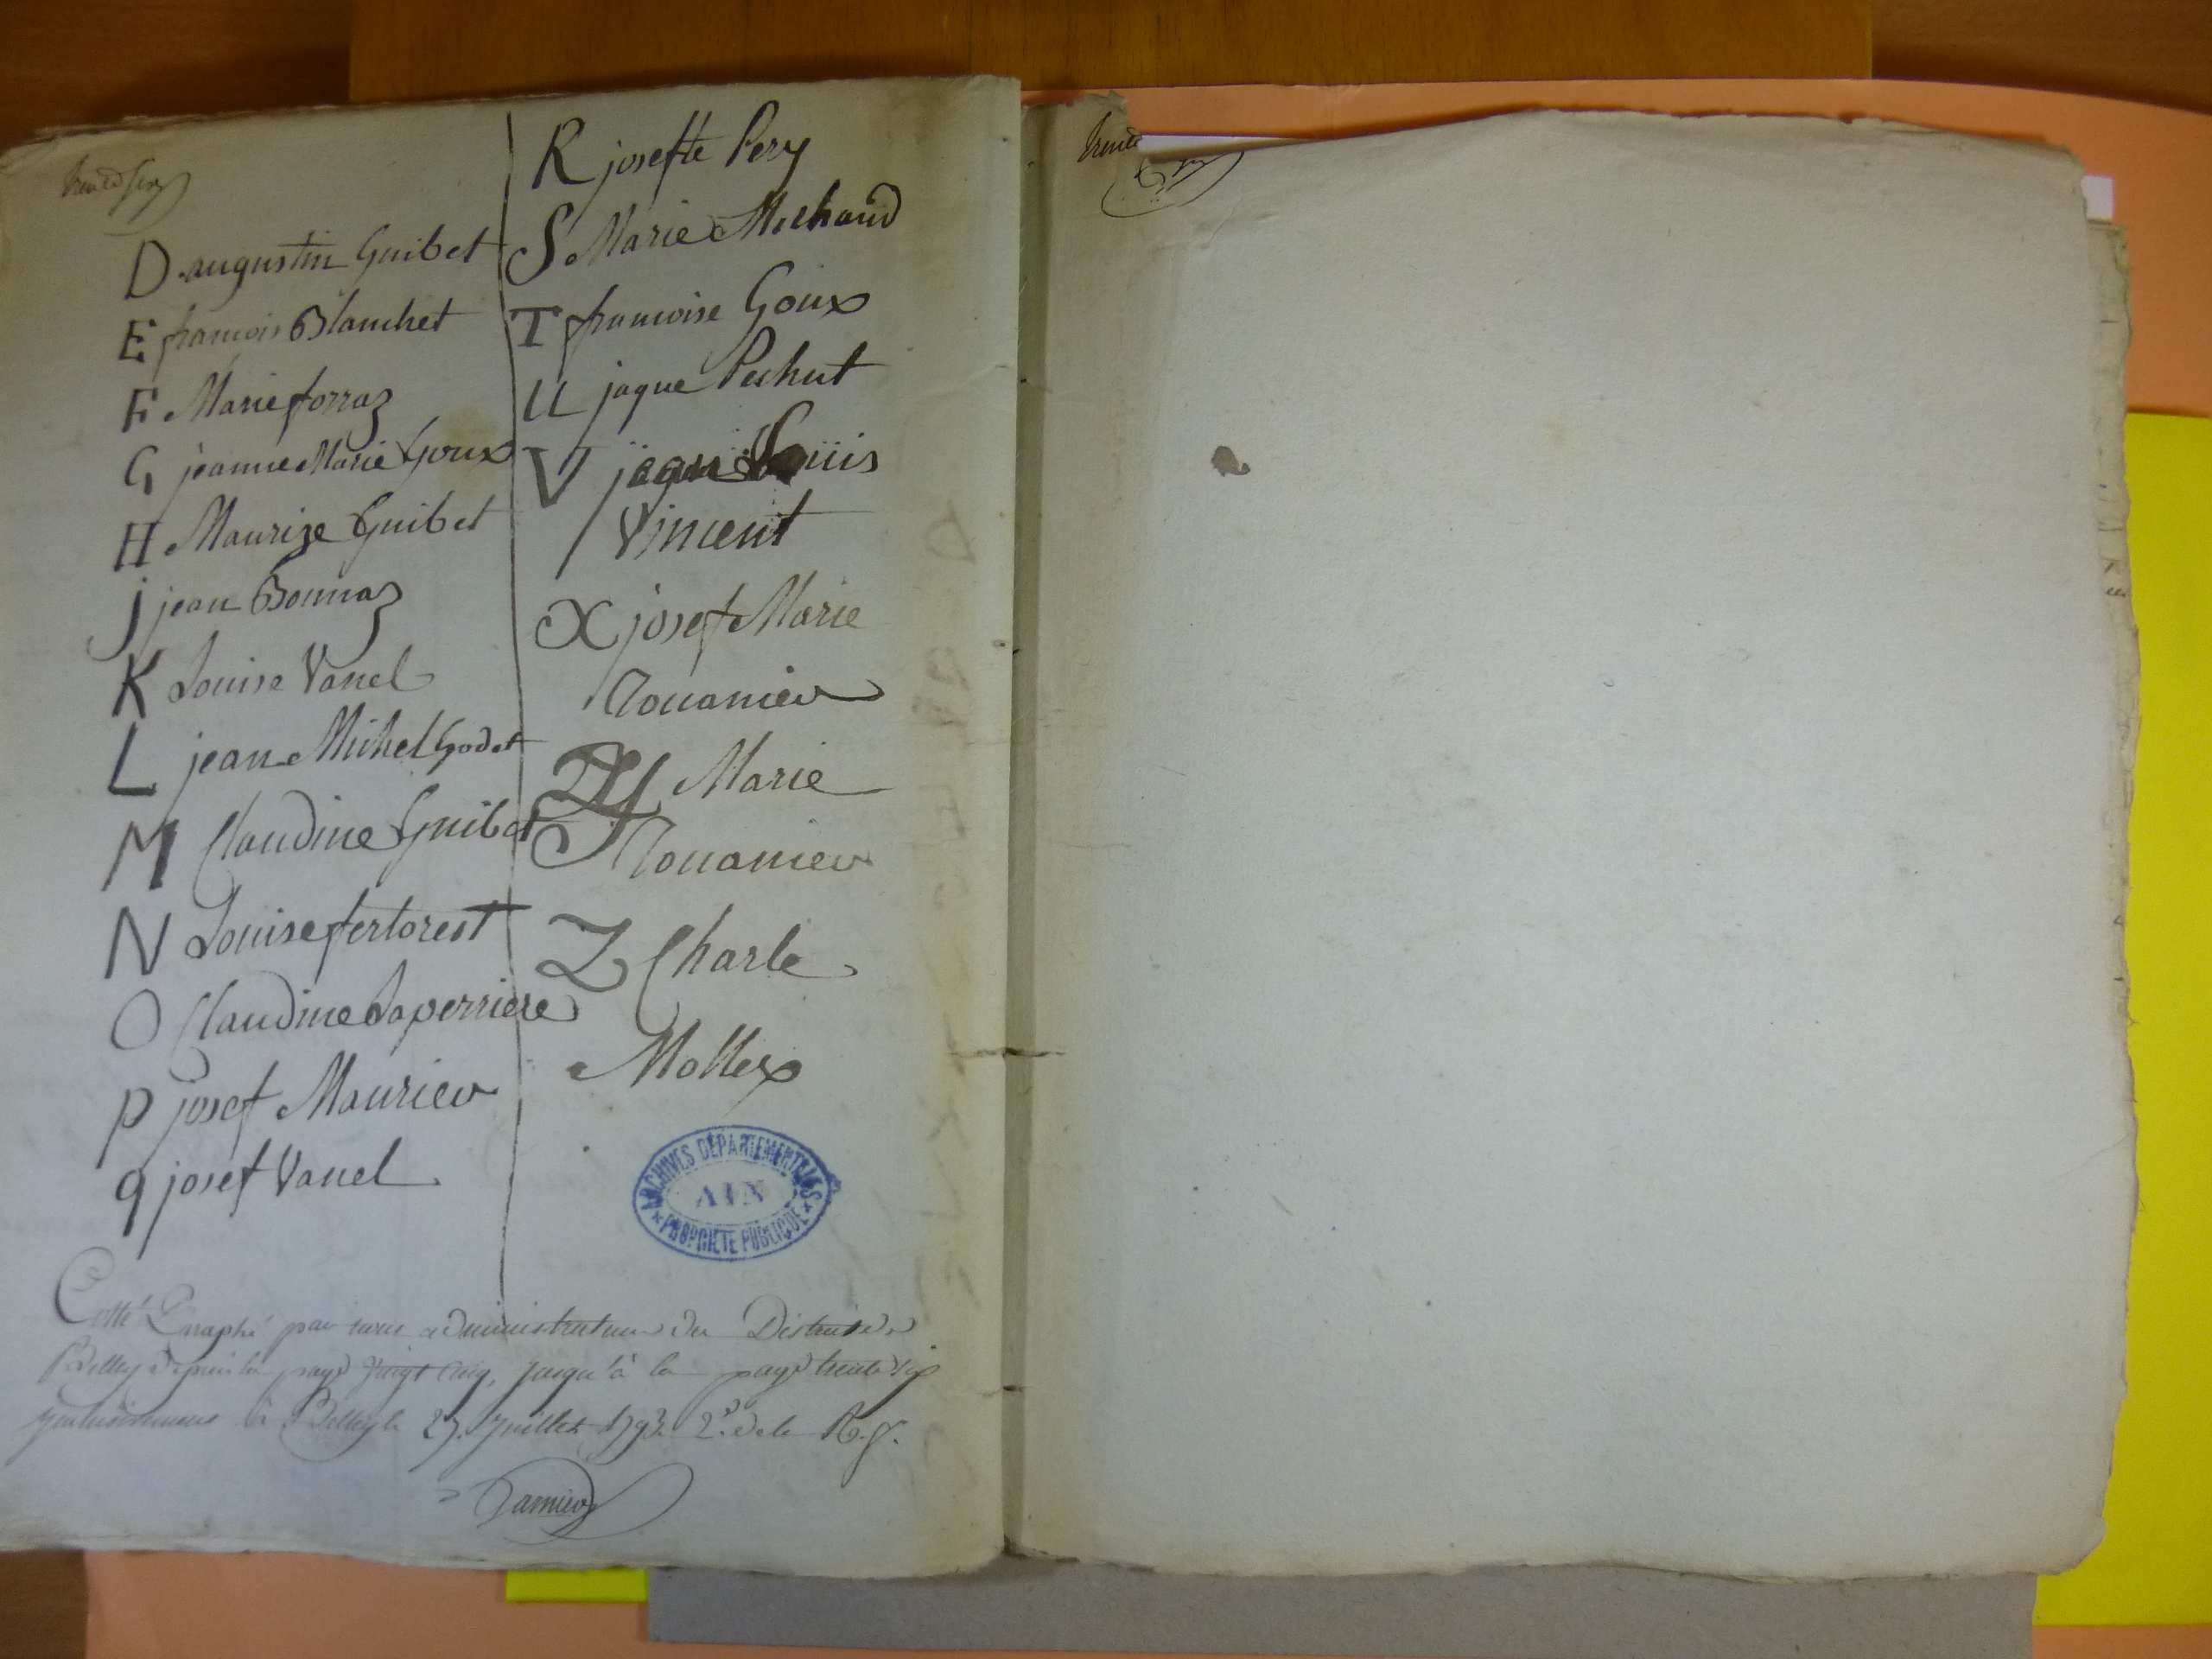 D augustin Guibet
E francois Blanchet
F Marie forraz
G jeanne Marie Goux
H Maurize Guibet
j jean Bonnaz
K Louise Vanel
L jean Michel Godet
M Claudine Guibet
N Louise fertorest
O Claudine Laperriere
p josef Maurier
q josef Vanel
R josefte Pery
S Marie Michaud
T francoise Goux
U jaque Pechut
V jaque Louis
Vincent
X josef Marie
Y Marie
Z Charle
Mollex
ARCHIVES DÉPARTEMENTALES
AIN
PROPRIÉTÉ PUBLIQUE
Cotté Paraphé par nous administrateur du District de
Belley depuis la page vingt cinq, jusqu'à la page trente six
à Belley le 27. Juillet 1793. 2.e de la R. f.